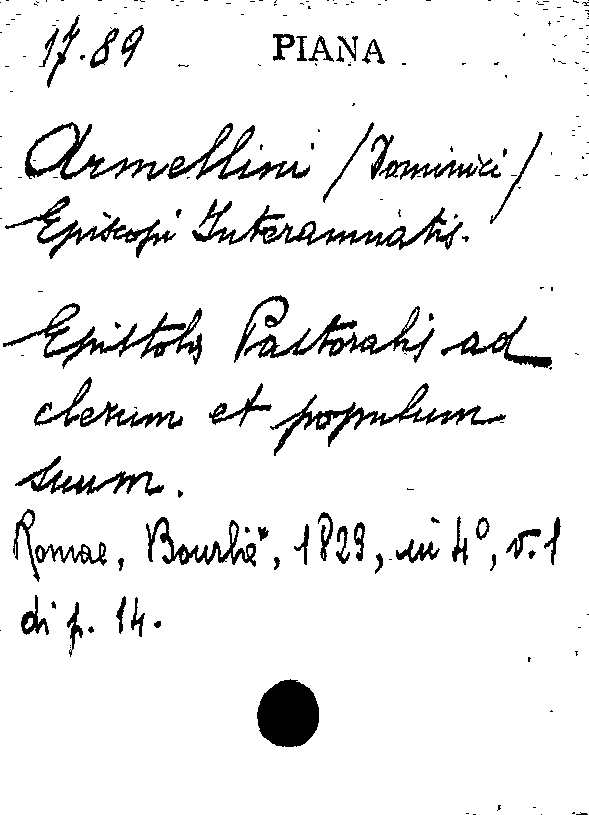 17.89 PIANA
Armellini /Dominici/
Episcopi Interamnatis.
Epistola Pastoralis ad
clerum et populum
suum.
Romae, Bourliè, 1823, in 4°, v. 1
di p. 14.